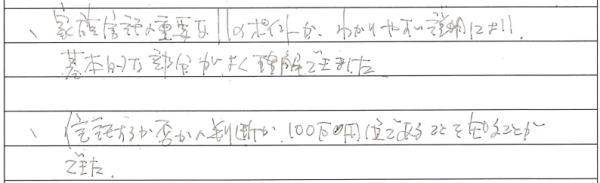 、家族信託の重要な11のポイントが、わかりやすい説明により、
基本的な部分がよく理解できました
、信託するか否かの判断が、100万円位であることを知ることが
できた。